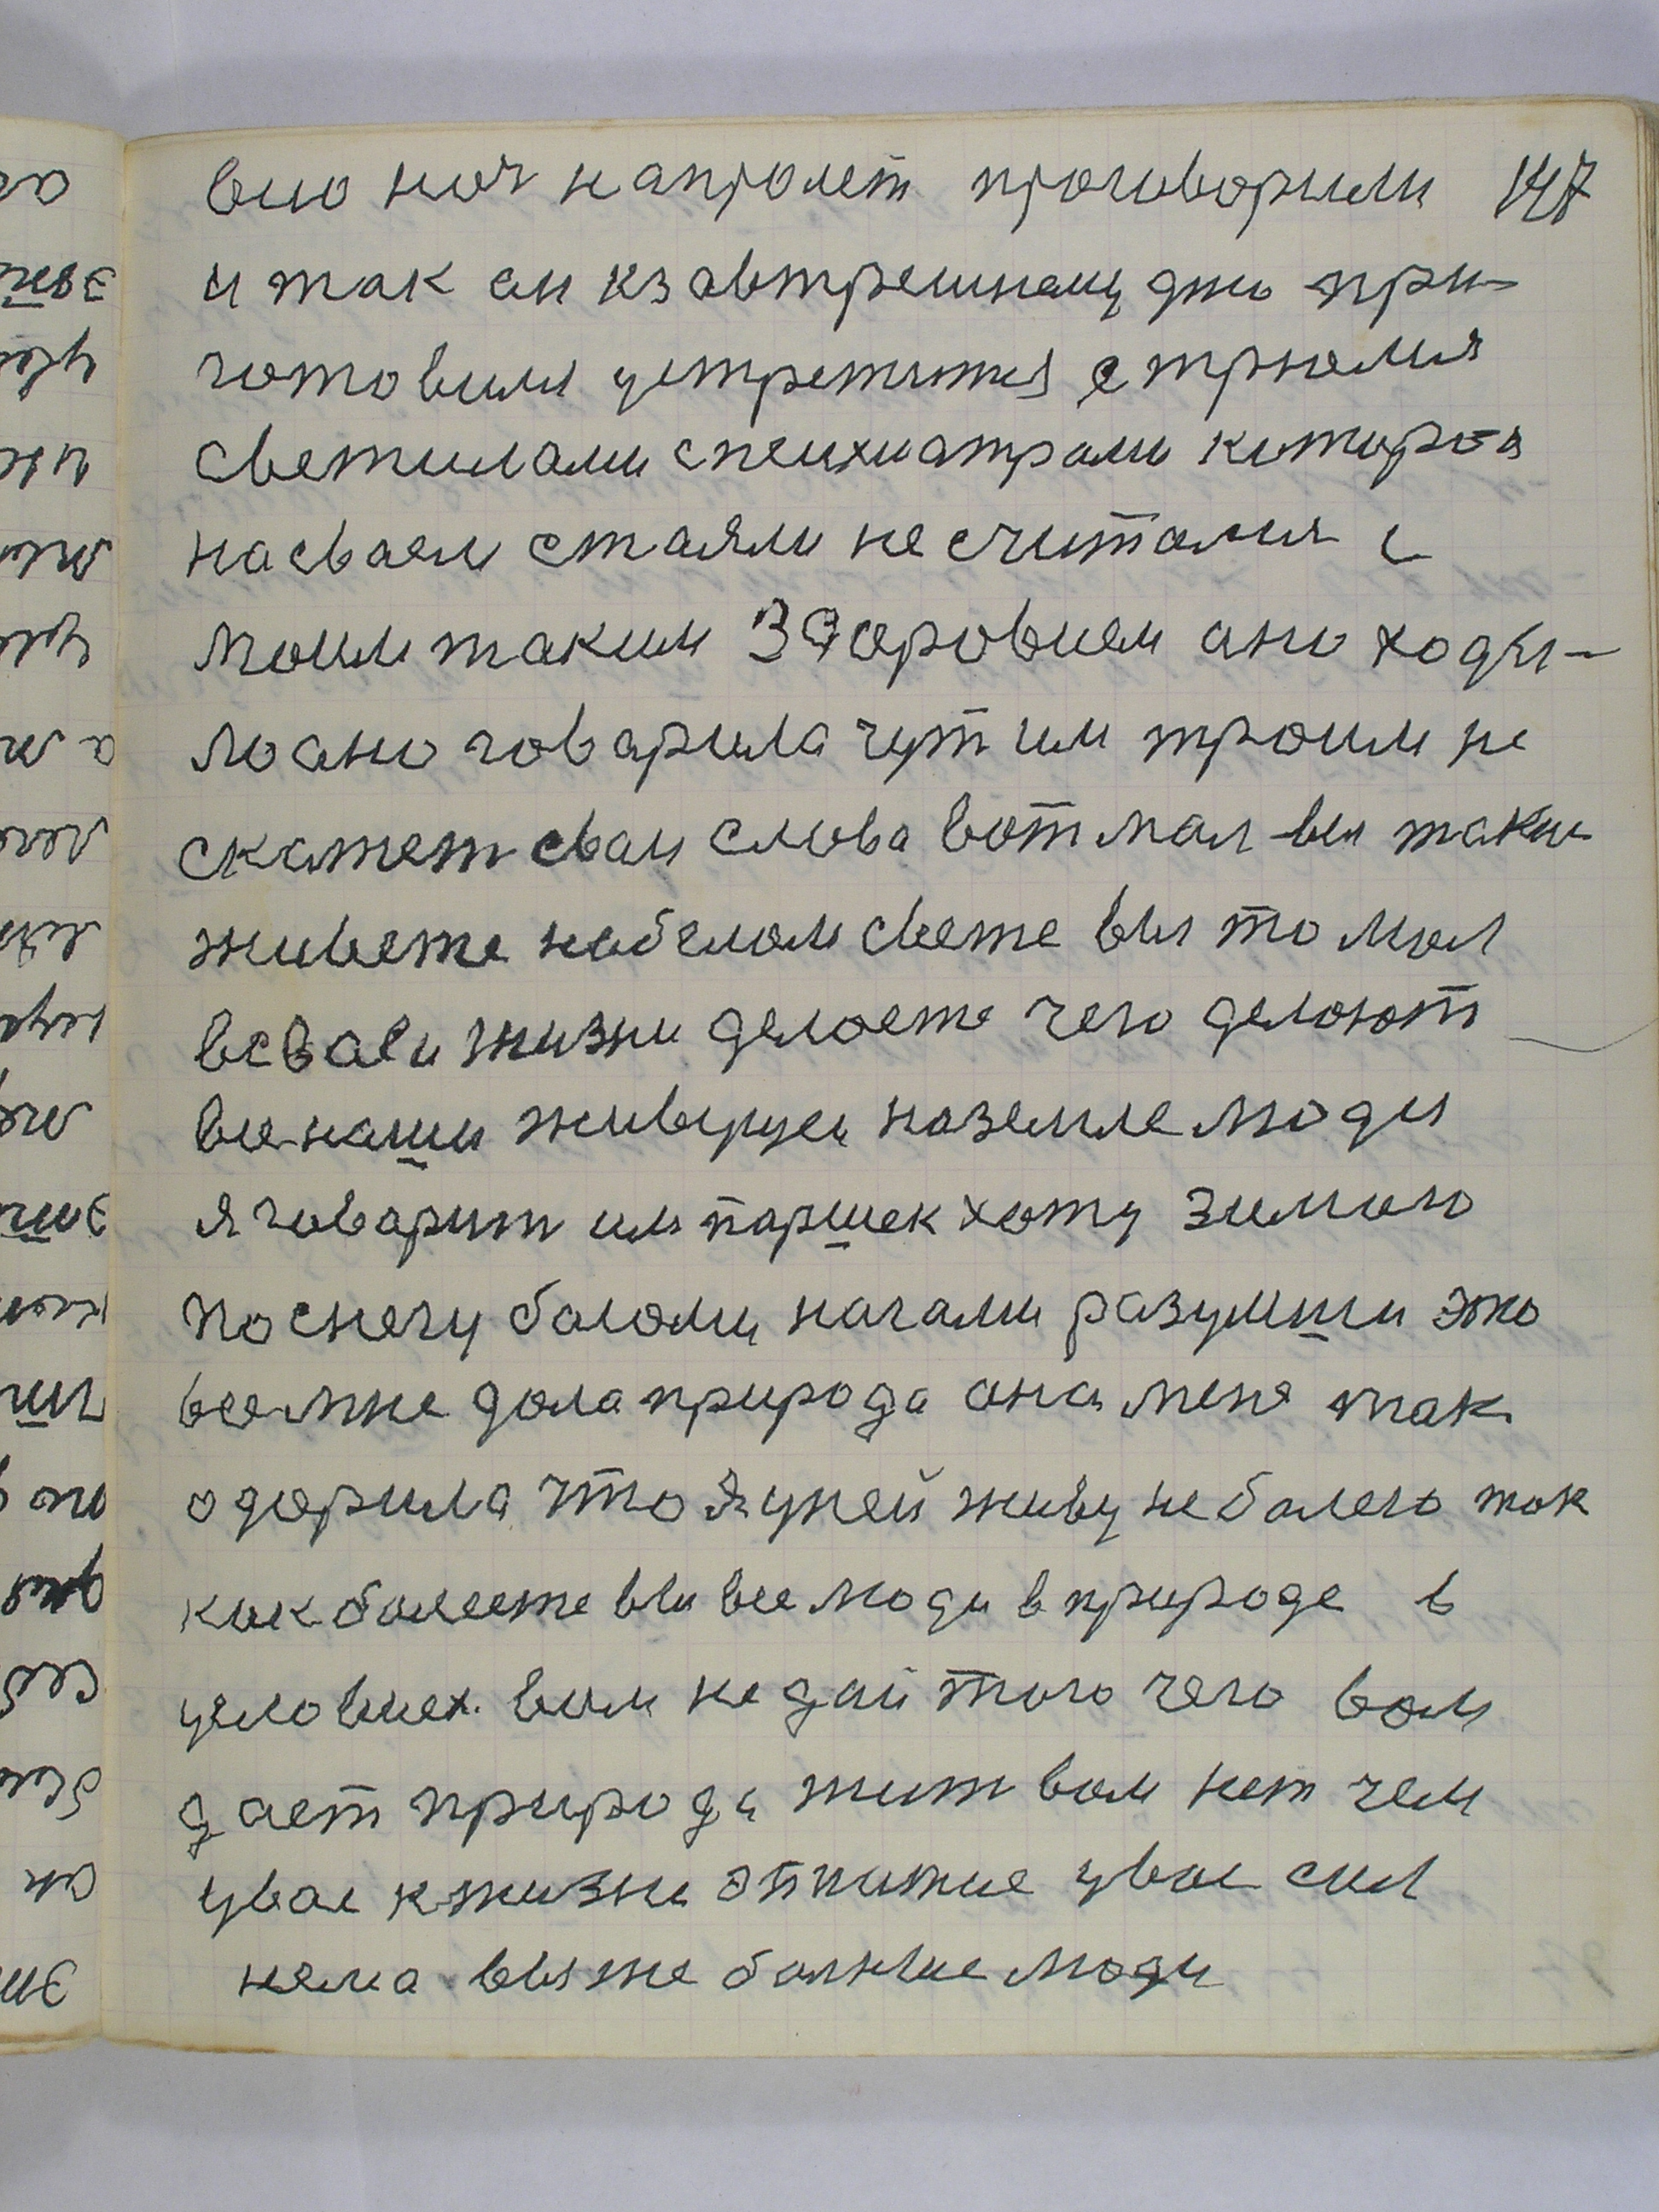 всю ноч напролет проговорили 147
и так он кзавтрешнему дню при-
готовился устретится с трнемя
светилами спеихиатрами которыя
на сваем стаяли не считался с
моим таким здаровием ано ходи-
ло ано говарила чут им троим не
скажет сваи слова вот мол вы таки
живете на белом свете вы то мол
в сваей жизни делаете чего делают
все наши живущи на земле люди
я говарит им паршек хожу зимою
по снегу босому ногами разумши это
все мне дала природа она меня так
одарила что я у ней живу не болею так
как болеете вы все люди в природе в
условиех. вам не дай того чего вам
дает природа жит вам нет чем
увас к жизни отпитие увас сил
нема вы же больные люди